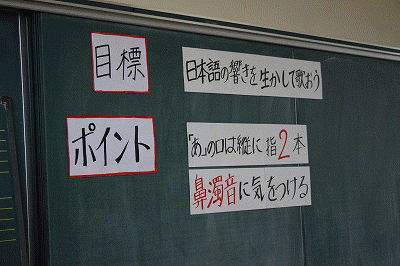 目標
日本語の響きを生かして歌おう
ポイント
「あ」の口は縦に指2本
鼻濁音に気をつける